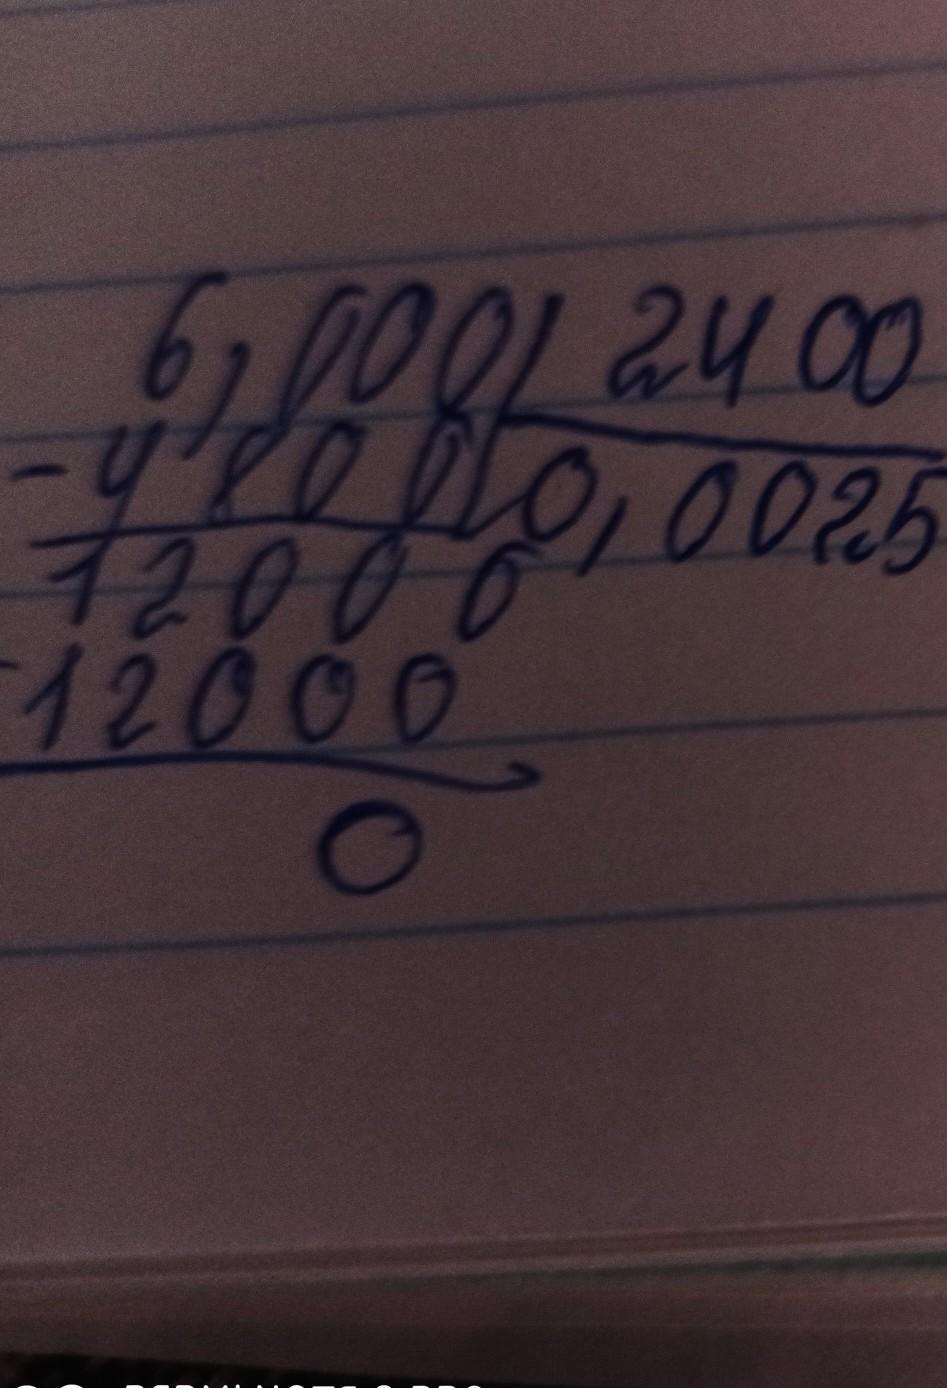 6,000 2400
-4800 0,0025
12000
-12000
0